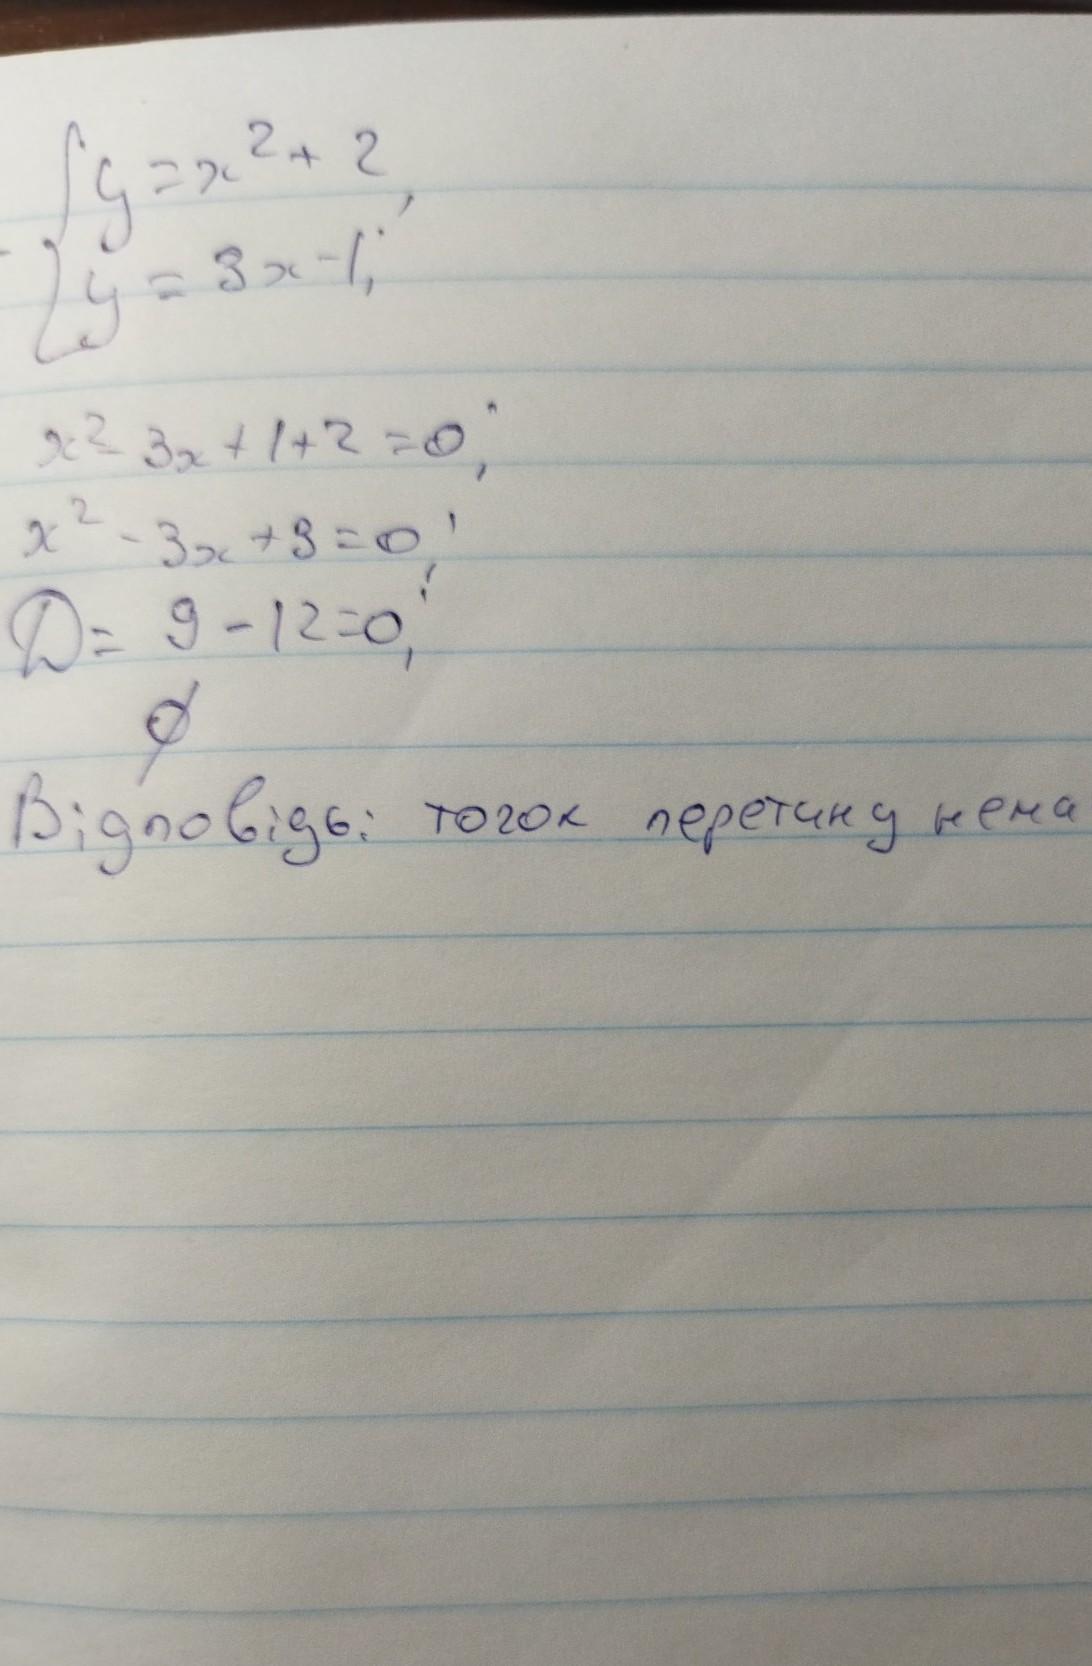 { y = x² + 2,
y = 3x - 1;
x² - 3x + 1 + 2 = 0;
x² - 3x + 3 = 0;
D = 9 - 12 = 0;
∅
Відповідь: точок перетину нема